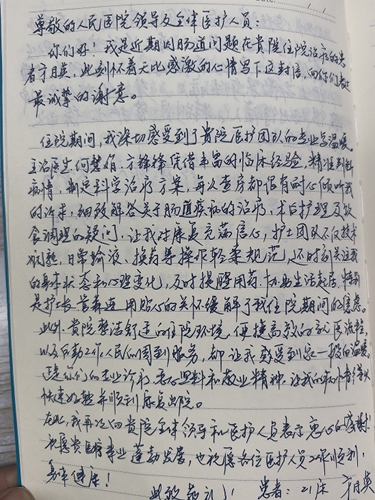 尊敬的人民医院领导及全体医护人员:
你们好!我是近期因肠道问题在贵院住院治疗的患
者方月英,此刻怀着无比感激的心情写下这封信,向你们致以
最诚挚的谢意。
住院期间,我深切感受到了贵院医护团队的专业与温暖,
主治医生何 方 凭借丰富的临床经验,精准判断
病情,制定科学治疗方案,每次查房都很有耐心倾听我
的诉求,细致解答关于肠道疾病的治疗,术后护理及饮
食调理的疑问,让我对康复充满信心,护士团队不仅技术
娴熟,日常输液、换药等操作轻柔规范,还时刻关注我
的身体状态和心理变化,及时提醒用药、协助生活起居,特别
是护士长 用贴心的关怀缓解了我住院期间的焦虑。
此外,贵院整洁舒适的住院环境,便捷高效的就医流程,
以及后勤工作人员的周到服务,都让我感受到家一般的温暖,
是你们的专业 和敬业精神,让我的病情得以
快速 康复出院。
在此,我再次向贵院全体领导和医护人员表示衷心的感谢!
祝愿贵院事业蓬勃发展,也祝愿各位医护人员工作顺利,
身体健康!
此致敬礼! 患者:21床 方月英